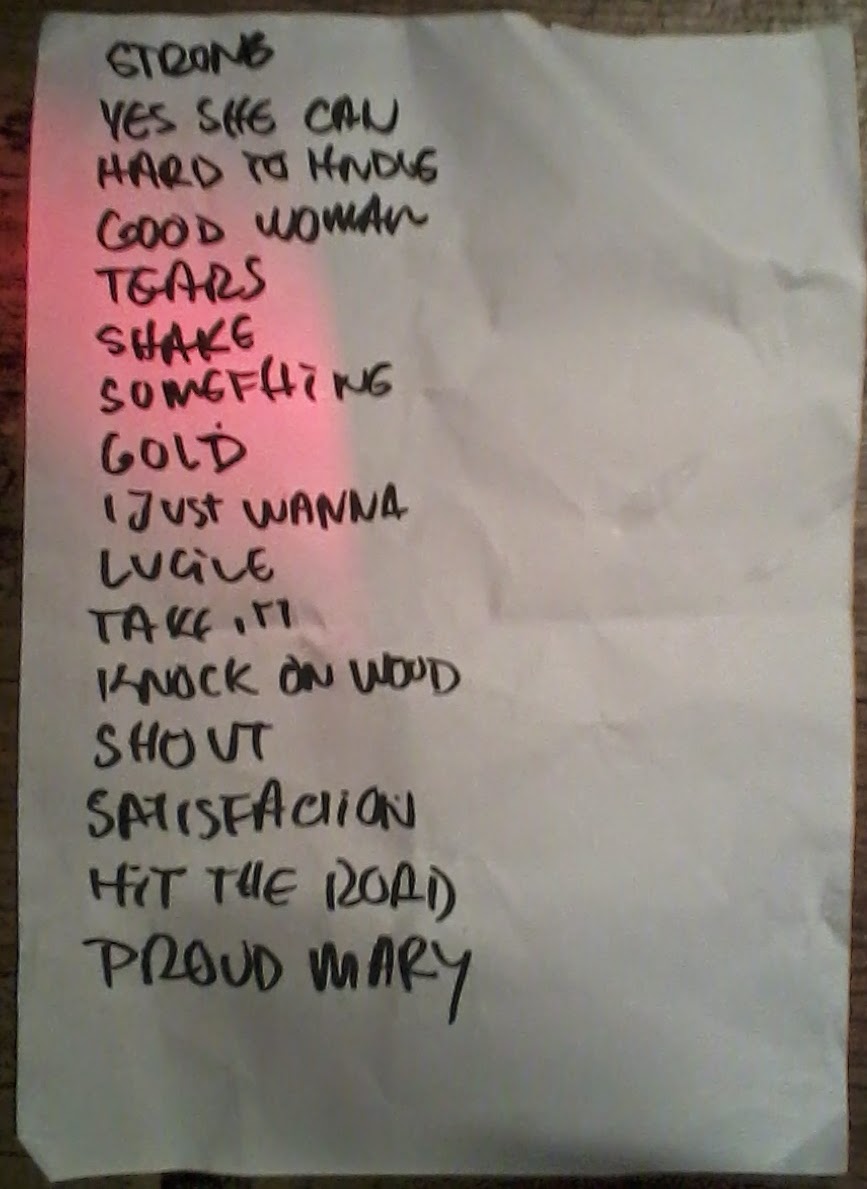 STRONG
YES SHE CAN
HARD TO HNDLE
GOOD WOMAN
TEARS
SHAKE
SOMETHING
GOLD
I JUST WANNA
LUCILE
TAKE IT!
KNOCK ON WOOD
SHOUT
SATISFACTION
HIT THE ROAD
PROUD MARY